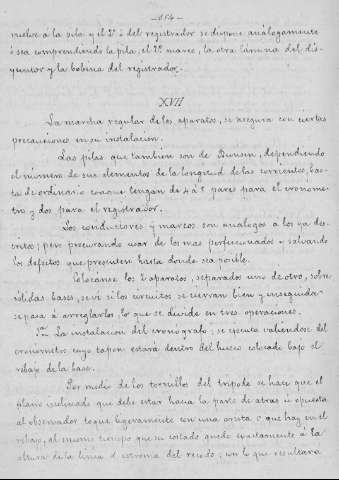 —154—
vuelve á la pila y el 2º ó del registrador se dispone análogamente
ó sea comprendiendo la pila, el 2º marco, la otra lámina del dis-
yuntor y la bobina del registrador.
XVII
La marcha regular de los aparatos, se asegura con ciertas
precauciones en su instalacion.
Las pilas que tambien son de Bunsen, dependiendo
el número de sus elementos de la longitud de las corrientes, bas-
ta de ordinario con que tengan de 4 á 5 pares para el cronome-
tro y dos para el registrador.
Los conductores y marcos son análogos á los ya des-
critos; pero procurando usar de los mas perfeccionados y salvando
los defectos que presenten hasta donde sea posible.
Colocanse los 2 aparatos, separados uno de otro, sobre
sólidas bases, se vé si los circuitos se cierran bien y enseguida
se pasa á arreglarlos, lo que se divide en tres operaciones.
1ª La instalacion del cronógrafo; se ejecuta valiendose del
cronometro cuyo tapon estará dentro del hueco colocado bajo el
rebajo de la base.
Por medio de los tornillos del tripode se hace que el
plano inclinado que debe estar hacia la parte de atras ú opuesta
al observador toque ligeramente con una arista que hay en el
rebajo, al mismo tiempo que su costado quede exactamente á la
altura de la linea ó estrema del con lo que resultará